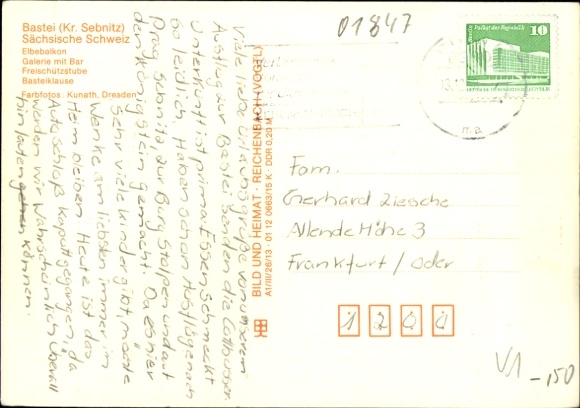 Bastei (Kr. Sebnitz)
Sächsische Schweiz
Elbebalkon
Galerie mit Bar
Freischützstube
Basteiklause
Farbfotos: Kunath, Dresden
01847
Palast der Republik
10
Viele liebe Urlaubsgrüße von unserem
Ausflug zur Bastei senden die Cottbusser
Unterkunft ist prima Essen schmeckt
so leidlich. Haben schon Ausflüge nach
Prag, Sebnitz zur Burg Stolpen und auf
den Königstein gemacht. Da es hier
sehr viele Kinder gibt, möchte
Wenke am liebsten immer im
Heim bleiben. Heute ist das
Autoschloß kaputtgegangen, da
werden wir wahrscheinlich überall
hin laufen können.
BILD UND HEIMAT · REICHENBACH (VOGTL)
A1/III/26/13 · 01 12 0663/15 K · DDR 0,20 M
Fam.
Gerhard Ziesche
Allende Höhe 3
Frankfurt / Oder
1200
V1 -150